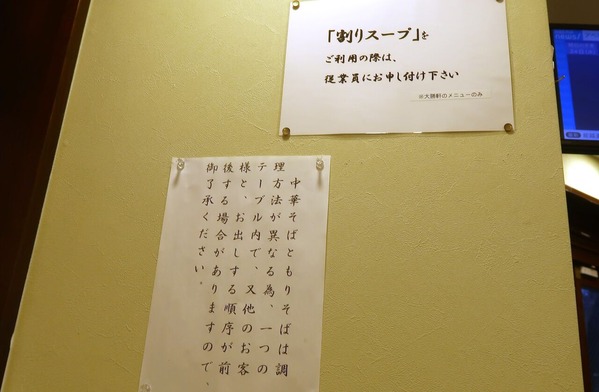 「割りスープ」を
ご利用の際は、
従業員にお申し付け下さい
※大勝軒のメニューのみ
中華そばともりそばは調
理方法が異なる為、一つの
テーブル内で、又他のお客
様と、お出しする順序が前
後する場合がありますので、
御了承ください。